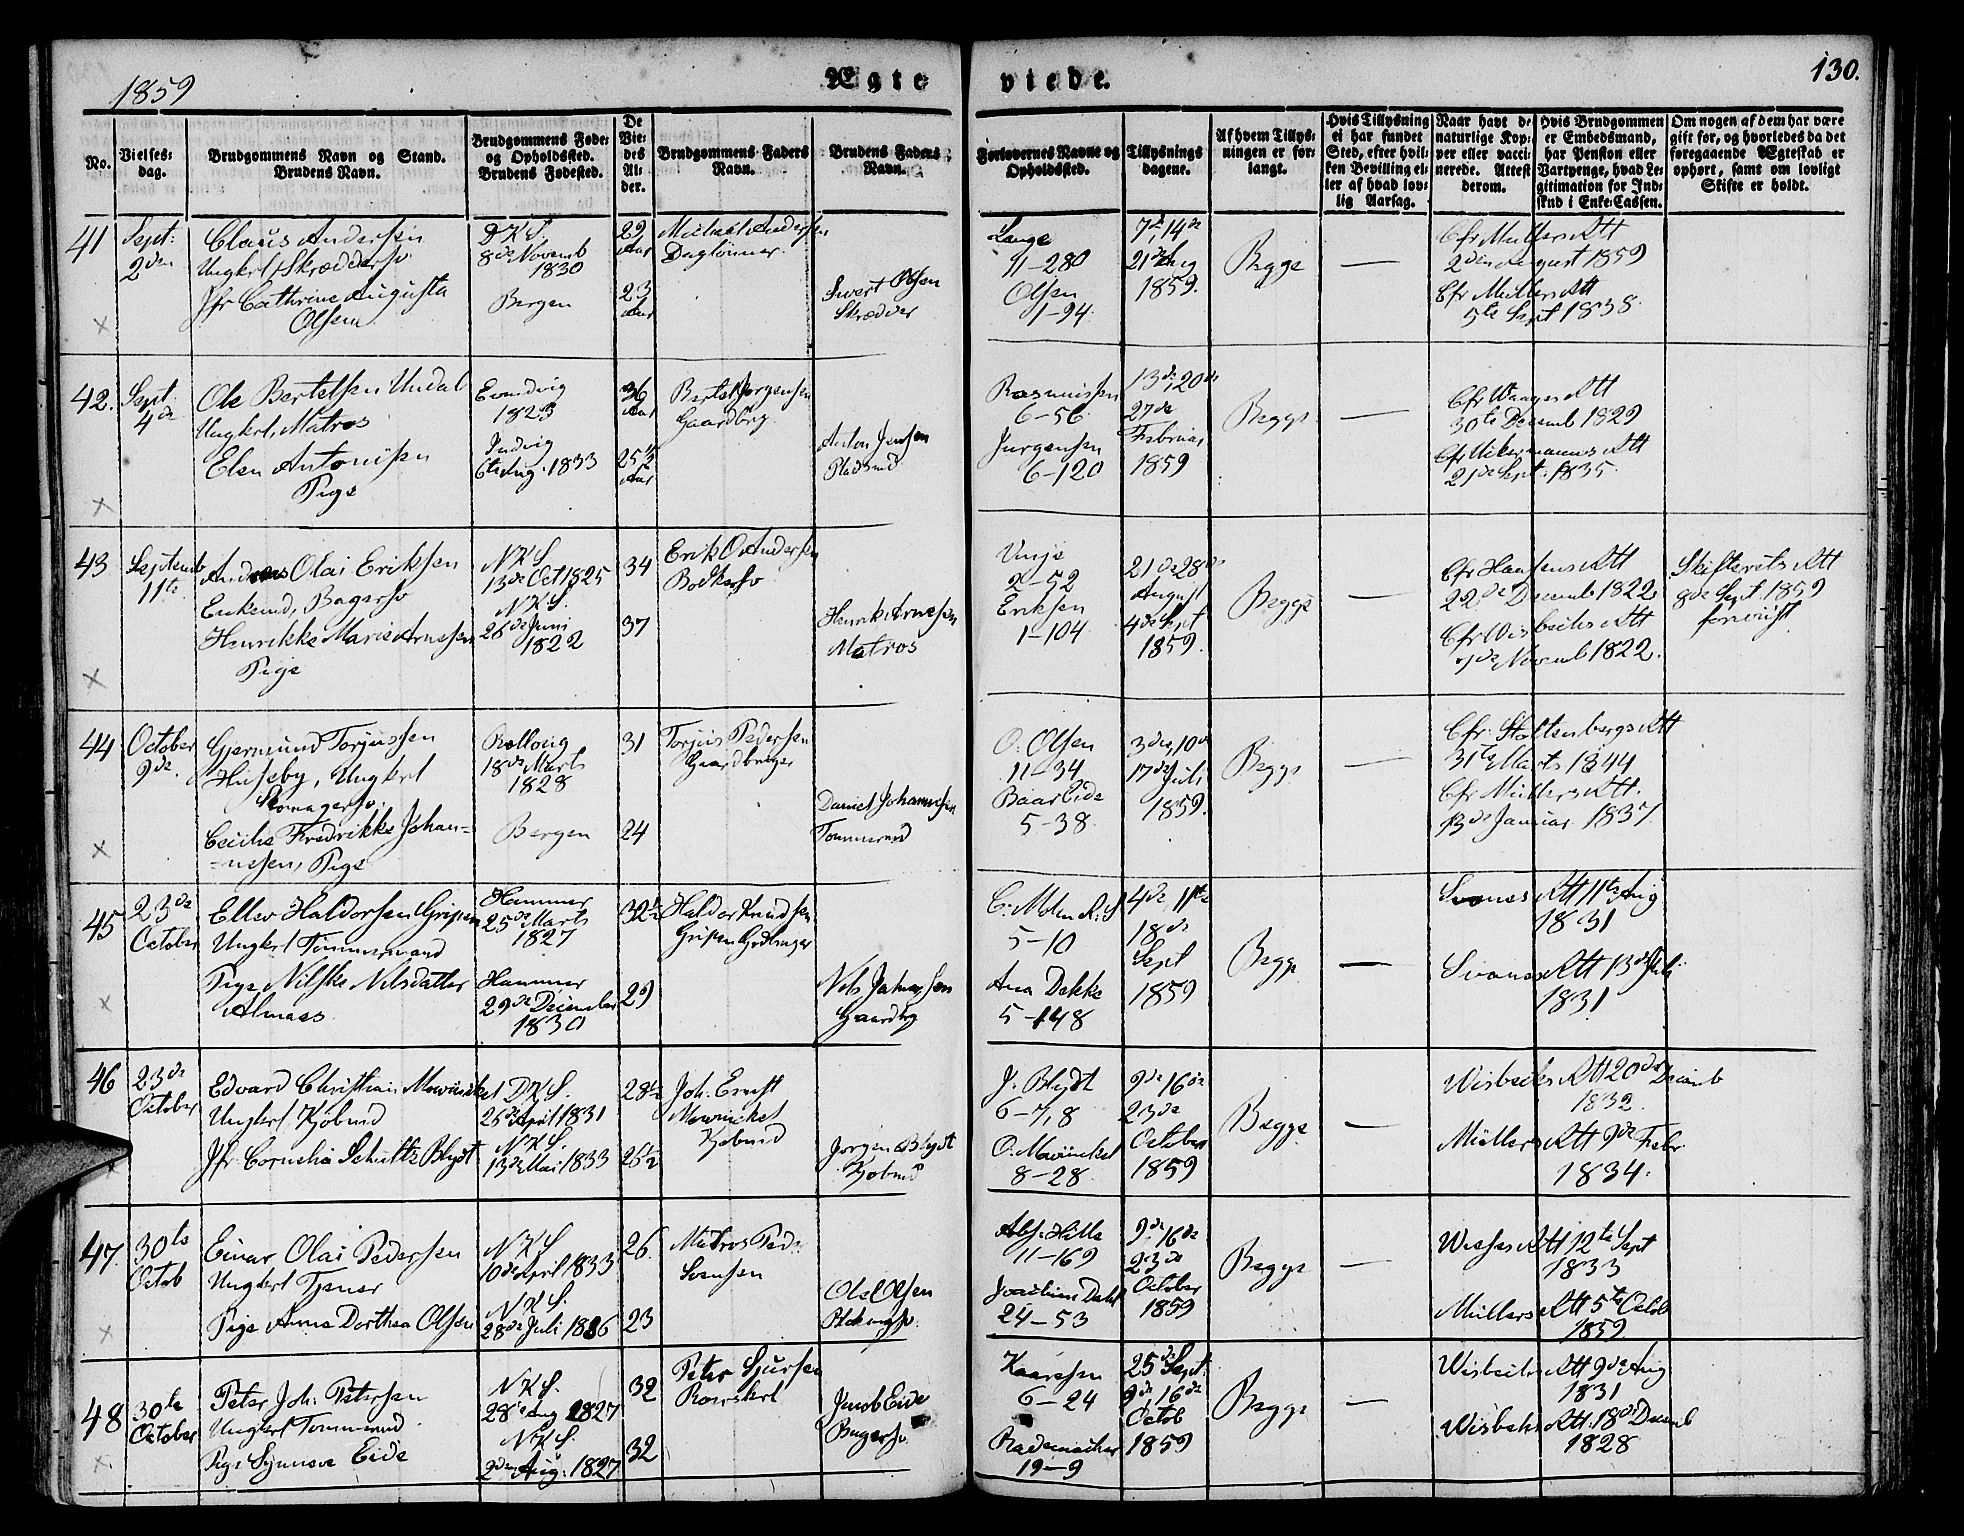 1859
Ægteviede.
130.
No.
Vielses-
dag.
Brudgommens Navn og Stand.
Brudens Navn.
Brudgommens Føde-
og Opholdssted.
Brudens Fødested.
De
Vie-
des
Al-
der.
Brudgommens Faders
Navn.
Brudens Faders
Navn.
Forlovernes Navne og
Opholdssted.
Tillysnings
dagene.
Af hvem Tillys-
ningen er for-
langt.
Hvis Tillysning
ei har fundet
Sted, efter hvil-
ken Bevilling el-
ler af hvad lov-
lig Aarsag.
Naar havt de
naturlige Kop-
per eller vacci-
nerede. Attest
derom.
Hvis Brudgommen
er Embedsmand,
har Pension eller
Vartpenge, hvad Le-
gitimation for Ind-
skud i Enke-Cassen.
Om nogen af dem har være
gift før, og hvorledes da det
foregaaende Ægteskab er
ophørt, samt om lovligt
Skifte er holdt.
41
Sept:
2den
Claus Andersen
Ungkrl, Skræddersv.
Jfr Cathrine Augusta
Olsen
D K S.
8de Novemb
1830
Bergen
29
Aar
23
Aar
Michael Andersen
Daglønner
Sivert Olsen
Skrædder
Lange
11-280
Olsen
1-94
7de, 14de
21de Aug
1859.
Begge
—
Cfr Müllers Att
2den August 1859
Cfr Müllers Att
5te Sept 1838.
42.
Sept.
4de
Ole Bertelsen Undal
Ungkrl, Matros
Elen Antonisen
Pige
Evindvig
1823
Indvig
6te Aug. 1833
36
Aar
25½
Aar
Bertel Jørgensen
Gaardbrg
Anton Jensen
Pladsmd
Rasmussen
6-56
Jürgensen
6-120
13de, 20de
27de
Februar
1859
Begge
—
30te Decemb 1829
21de Sept. 1835.
43
Septemb
11te
Andreas Olai Eriksen
Enkemd, Bagersv
Henrikke Marie Arnesen
Pige
N K S.
13de Oct 1825
N K S.
28de Juni
1822
34
37
Erik O Andersen
Bødkersv
Henrik Arnesen
Matros
Vinje
2-52
Eriksen
1-104
21de 28de
August
4de Sept
1859.
Begge
—
Cfr Hansens Att
22de Decemb 1822
Cfr Wisbechs Att
7de Novemb 1822.
Skifterets Att
8de Sept. 1859
foreviist
44
October
9de.
Gjermund Torjussen
Huseby, Ungkrl
Skomagersv.
Cecilie Fredrikke Johan-
-nesen, Pige
Rollovig
18de Marts
1828
Bergen
31
24
Torjus Pedersen
Gaardbruger
Daniel Johannesen
Tømmermd
O. Olsen
11-34
Baar Eide
5-38
3die, 10de
17de Juli
1859.
Begge
—
Cfr. Stoltenbergs Att
31te Marts 1844
Cfr Müllers Att.
13de Januar 1837
45
23de
October
Ellev Haldorsen Gripen
Ungkrl Tømmermand
Pige Nilske Nilsdatter
Almaas
Hammer
25de Marts
1827
Hammer
29de December
1830
32½
29
Haldor Knudsen
Gripen Grdbruger
Nils Johannesen
Gaardbrg
C. Molen R. S
5-10
Ana Dekke
5-148
4de 11te
18de
Sept
1859
Begge
—
Svanes Att 11te Aug
1831
Svanes Att 13de Juli
1831
46
23de
October
Edvard Christian Mowinckel
Ungkrl Kjøbmd
Jfr. Cornelia Schultz Blydt
D. K S.
26de April 1831
N K S.
13de Mai 1833
28½
26½
Joh. Ernst
Mowinckel
Kjøbmd
Jørgen Blydt
Kjøbmd
J. Blydt
6-7,8
O. Mowinckel
8-28
9de 16de
23de
October
1859
Begge
—
Wisbechs Att 20de Decemb
1832.
Müllers Att 9de Febr
1834.
47.
30te
Octob
Einar Olai Pedersen
Ungkrl Tjener
Pige Anna Dorthea Olsen
N K S.
10de April 1833
N K S.
28de Juli 1836
26
23
Matros Peder
Svensen
Ole Olsen
Hille
11-169
Joachim Dahl
24-53
9de 16de
23de
October
1859
Begge
—
Wieses Att 12te Sept
1833
Müllers Att 5te Octob
1859
48
30te
October
Peter Joh: Petersen
Ungkrl Tømmermd
Pige Synneve Eide
N K S.
28de Aug 1827
N K S.
2den Aug. 1827
32
32
Peter Sjursen
Jacob Eide
Bagersv.
Kaarssen
6-24
Rademacher
19-9
25de Sept.
9de, 16de
Octob
1859
Begge
—
Wisbechs Att 9de Aug
1831
Wisbechs Att. 18de Decemb
1828